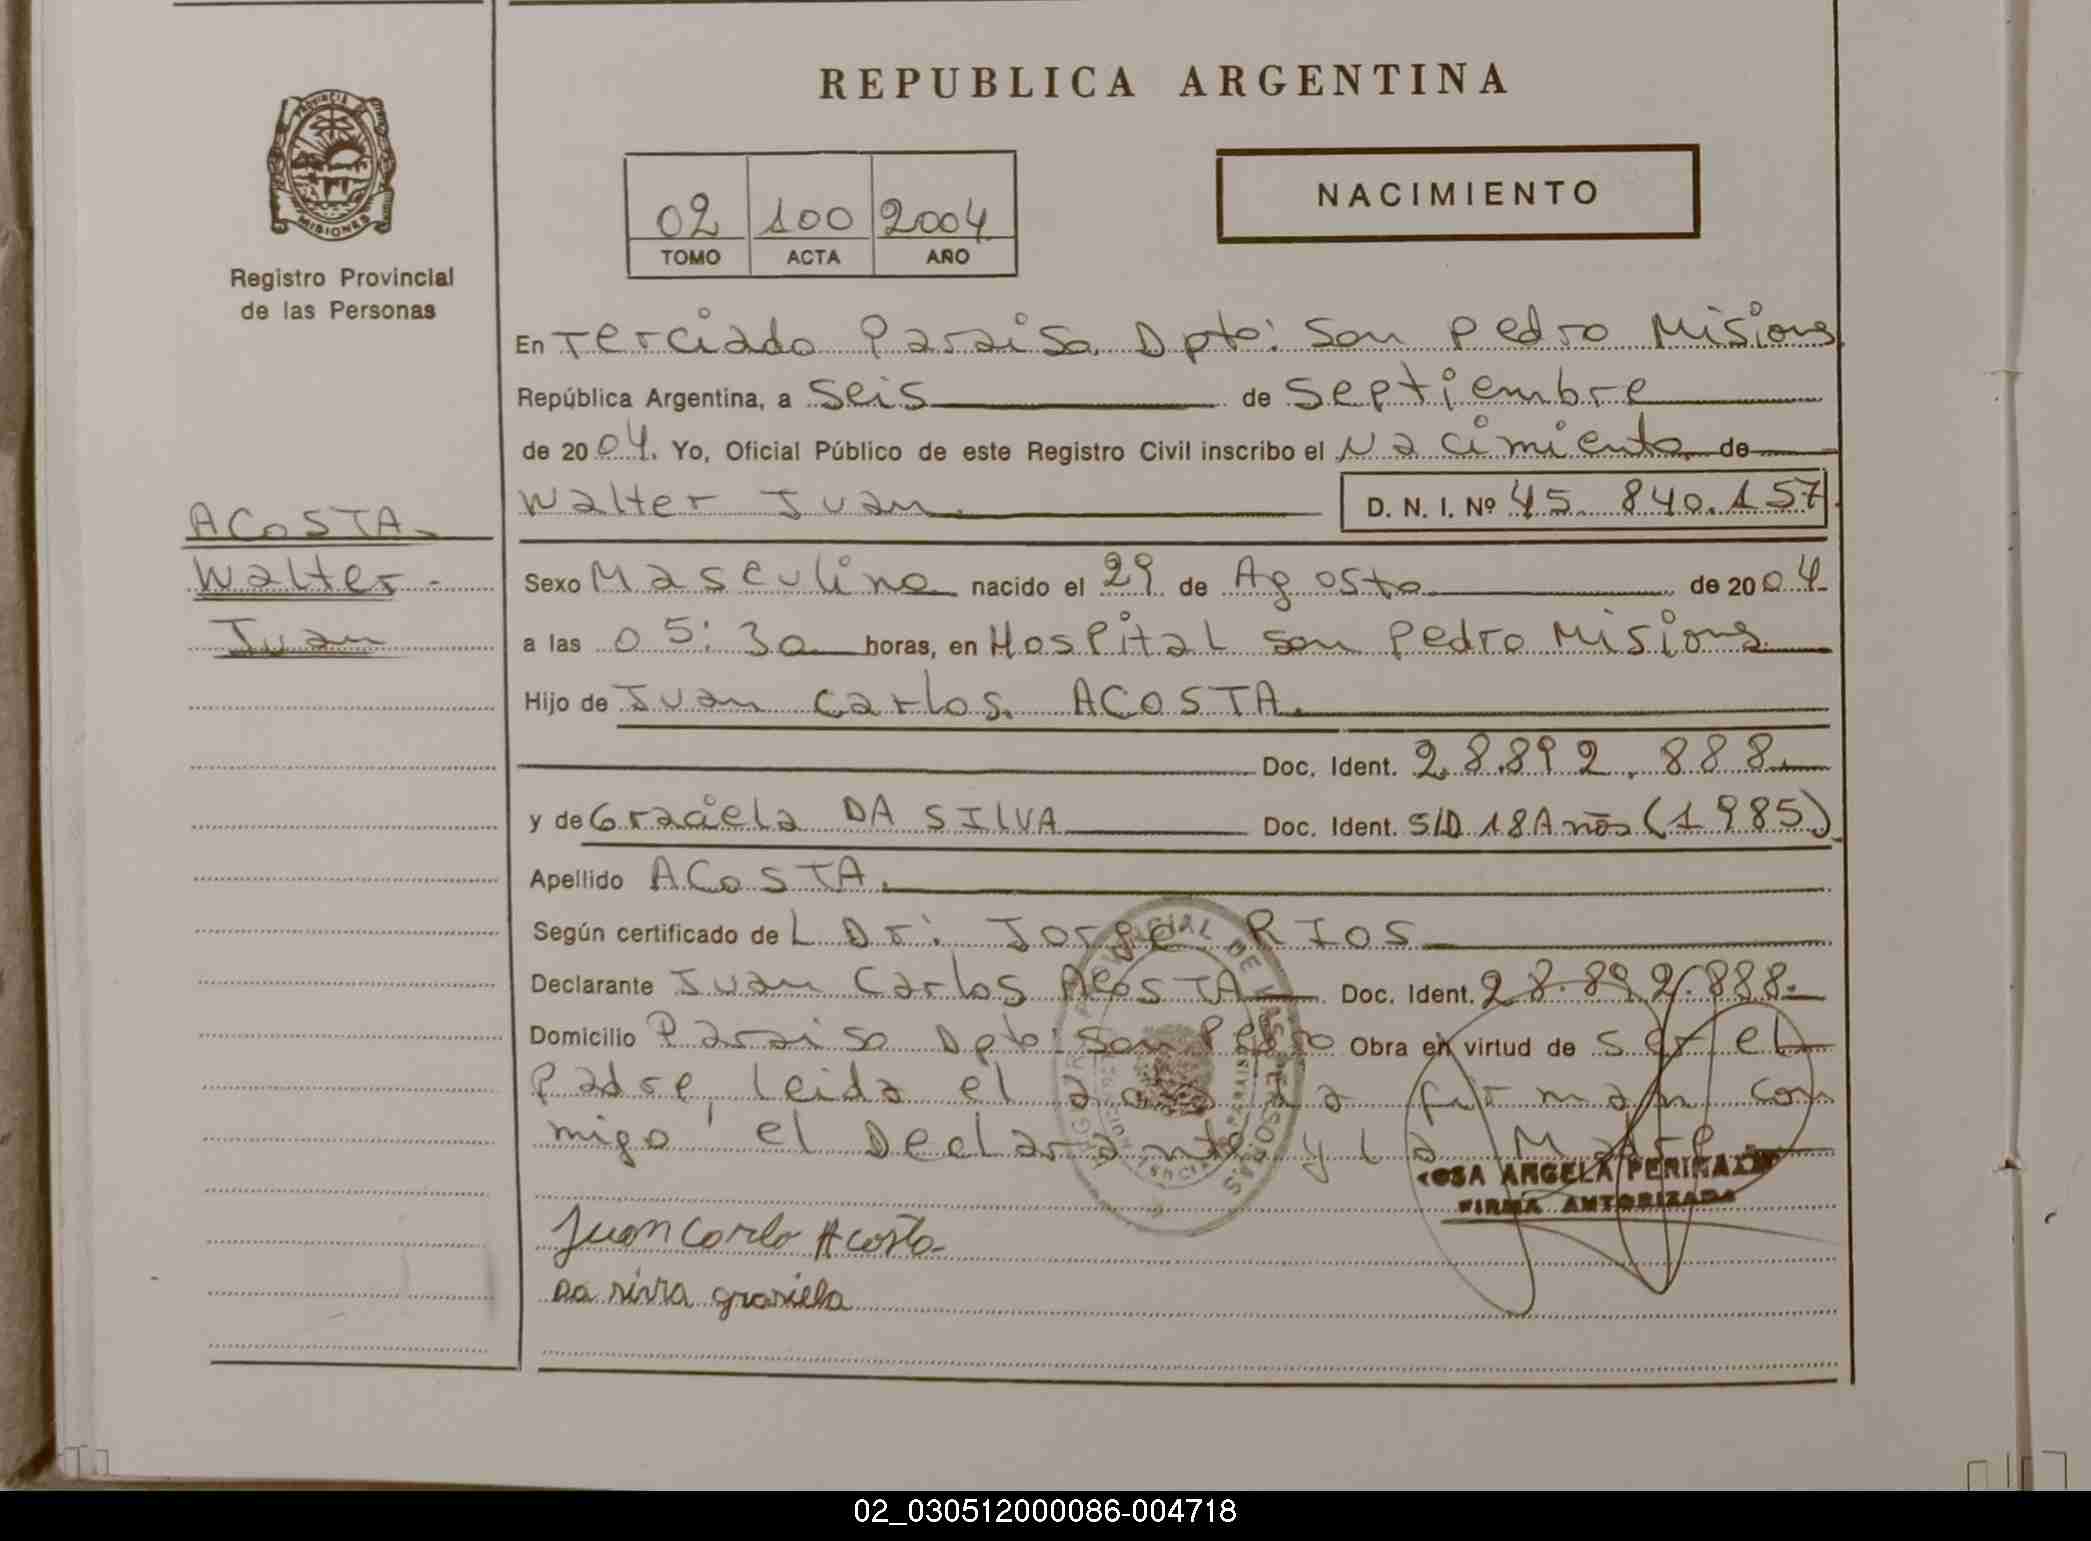 REPUBLICA ARGENTINA
PROVINCIA DE
MISIONES
Registro Provincial
de las Personas
02 100 2004
TOMO ACTA AÑO
NACIMIENTO
En Terciado Paraiso Dpto: San Pedro Misiones
República Argentina, a seis de Septiembre
de 2004. Yo, Oficial Público de este Registro Civil inscribo el Nacimiento de
Walter Juan. D. N. I. Nº 45.840.157
ACOSTA
Walter
Juan
Sexo Masculino nacido el 29 de Agosto de 2004
a las 05:30 horas, en Hospital San Pedro Misiones
Hijo de Juan Carlos. ACOSTA.
Doc. Ident. 28.892.888
y de Graciela DA SILVA Doc. Ident. S/D 18 Años (1985)
Apellido ACOSTA.
Según certificado de L Dr: Jorge RIOS
Declarante Juan Carlos ACOSTA Doc. Ident. 28.892.888.
Domicilio Paraiso Dpto: San Pedro Obra en virtud de ser el
Padre, leida el acta la firman con
migo el Declarante y la Madre
ROSA ANGELA
FIRMA AUTORIZADA
Juan Carlo Acosta
Da silva graciela
02_030512000086-004718